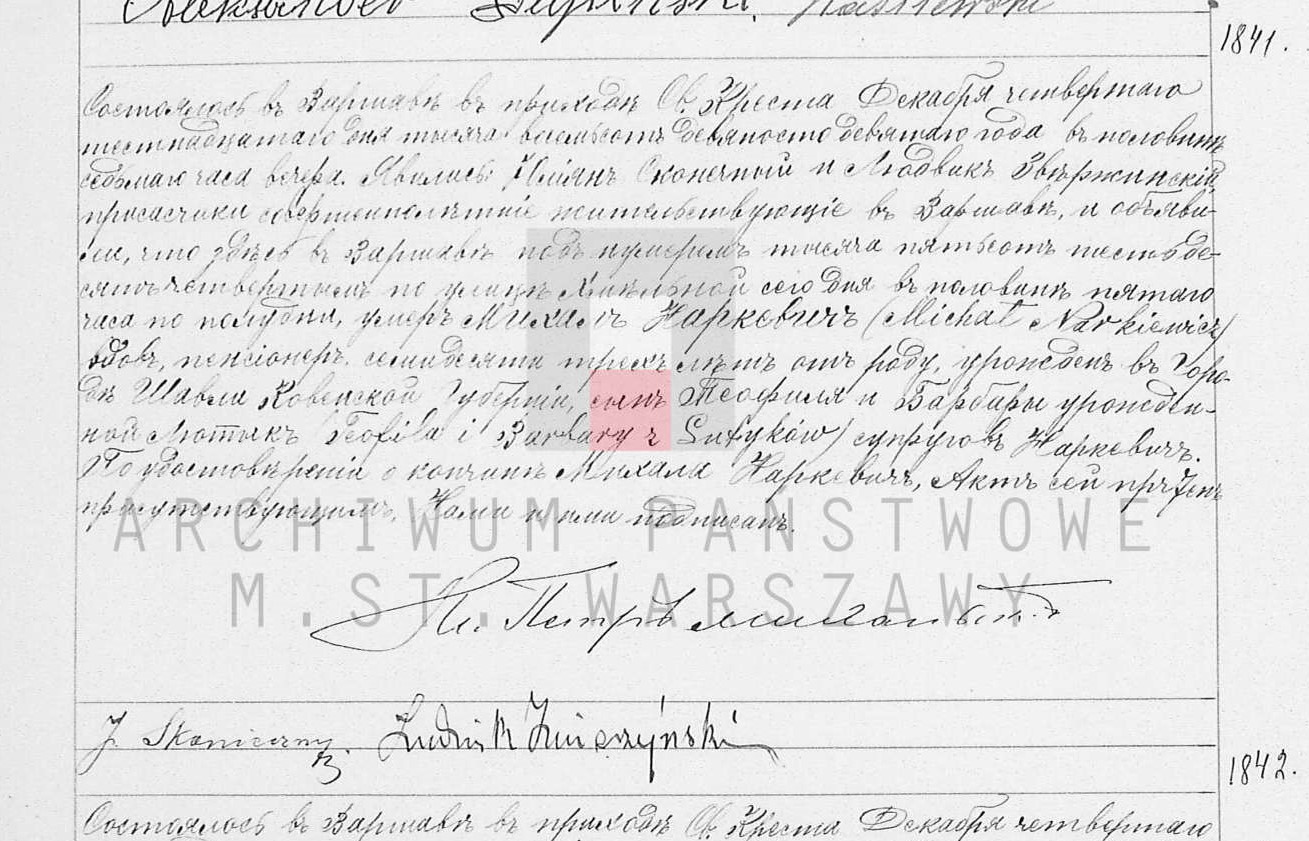 Aleksander
1841.
Состоялось въ Варшавѣ въ приходѣ Св. Креста Декабря четвертаго
шестнадцатаго дня тысяча восемьсотъ девяносто девятаго года въ половинѣ
седьмаго часа вечера. Явились: Юліянъ Сконечный и Людвикъ Звѣржинскій,
совершеннолѣтніе жительствующіе въ Варшавѣ, и объяви-
ли, что здѣсь въ Варшавѣ подъ нумеромъ тысяча пятьсотъ шестьде-
сятъ четвертымъ по улицѣ Хмѣльной сего дня въ половинѣ пятаго
часа по полудни, умеръ Михалъ Наркевичъ (Michał Narkiewicz)
вдовъ, пенсіонеръ, семидесяти трехъ лѣтъ отъ роду, урожденъ въ горо-
дѣ Шавли Ковенской Губерніи, сынъ Теофиля и Барбары урожден-
ной Лютыкъ (Teofila i Barbary z Lutyków) супруговъ Наркевичъ.
По удостовѣреніи о кончинѣ Михала Наркевичъ, Актъ сей
присутствующимъ, Нами и ими подписанъ.
ARCHIWUM PAŃSTWOWE
M.ST. WARSZAWY
Кс. Петръ
J. Skonieczny. Ludwik Zwierzyński
1842.
Состоялось въ Варшавѣ въ приходѣ Св. Креста Декабря четвертаго